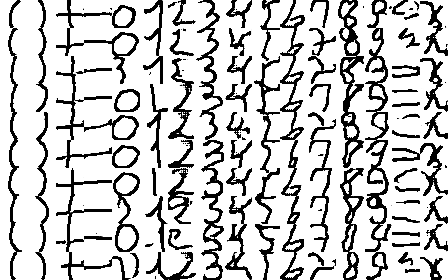 ( ) + - 0 1 2 3 4 5 6 7 8 9 = x
( ) + - 0 1 2 3 4 5 6 7 8 9 x
( ) + - 1 2 3 4 5 6 7 8 9 = x
( ) + - 0 1 2 3 4 5 6 7 8 9 = x
( ) + - 0 1 2 3 4 5 6 7 8 9 x
( ) + - 0 1 2 3 4 5 6 7 8 9 = x
( ) + - 0 1 2 3 4 5 6 7 8 9 x
( ) + - 1 2 3 4 5 6 7 8 9 = x
( ) + - 0 1 2 3 4 5 6 7 8 9 = x
( ) + - 1 2 3 4 5 6 7 8 9 x